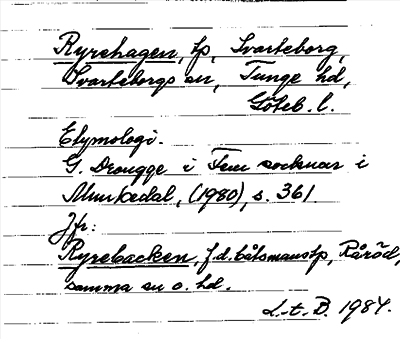 Ryrehagen, tp, Svarteborg,
Svarteborgs sn, Tunge hd,
Göteb. l.
Etymologi.
G. Drougge i Fem socknar i
Munkedal, (1980), s. 361.
Jfr:
Ryrebacken, f.d. båtsmanstp, Råröd,
samma sn o. hd.
L-t. B. 1984.